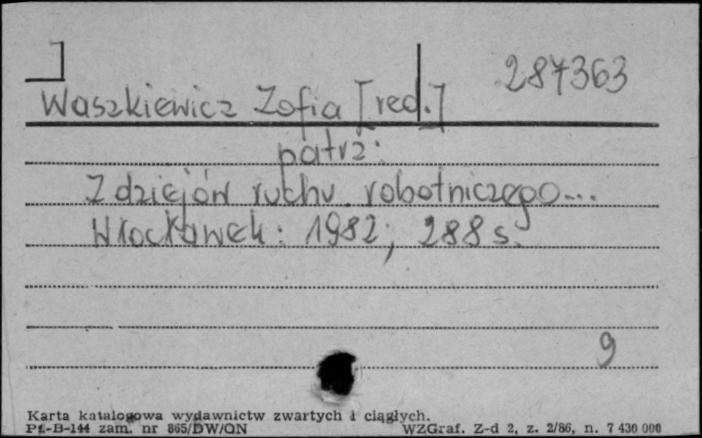 287363
Waszkiewicz Zofia [red.]
patrz:
Z dziejów ruchu robotniczego...
Włocławek: 1982, 288 s.
9
Karta katalogowa wydawnictw zwartych i ciągłych.
Pt-B-144 zam. nr 865/DW/QN WZGraf. Z-d 2, z. 2/86, n. 7 430 000